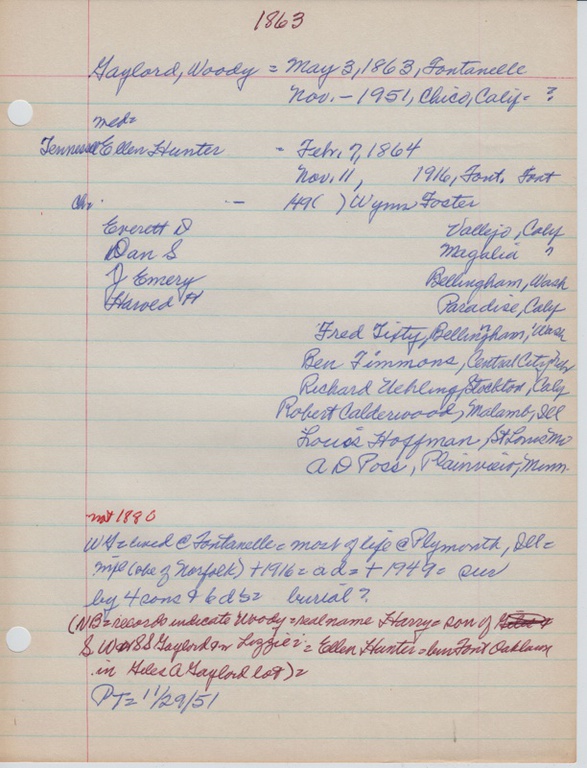 1863
Gaylord, Woody = May 3, 1863, Fontanelle
Nov. - 1951, Chico, Calif = ?
med=
Tennessee Ellen Hunter - Feb. 7, 1864
Nov. 11, 1916, Font. Font
Ch. - H9( ) Wynn Foster
Everett D Vallejo, Calif
Dan S Magalia ?
J Emery Bellingham, Wash
Harold H Paradise, Calif
Fred Tixty, Bellingham, Wash
Ben Timmons, Central City, Neb
Richard Uehling, Stockton, Calif
Robert Calderwood, Malamb, Ill
Louis Hoffman, St Louis Mo
A D Poss, Plainview, Minn.
not 1880
WG = lived @ Fontanelle = most of life @ Plymouth, Ill =
(obe of Norfolk) +1916 = a d = + 1949 = sur
by 4 sons & 6 ds = burial ?
(NB = records indicate Woody = real name Harry = son of
S S Gaylord Lizzie = Ellen Hunter = bur Font Oaklawn
in Giles A Gaylord lot) =
PT = 11/29/51